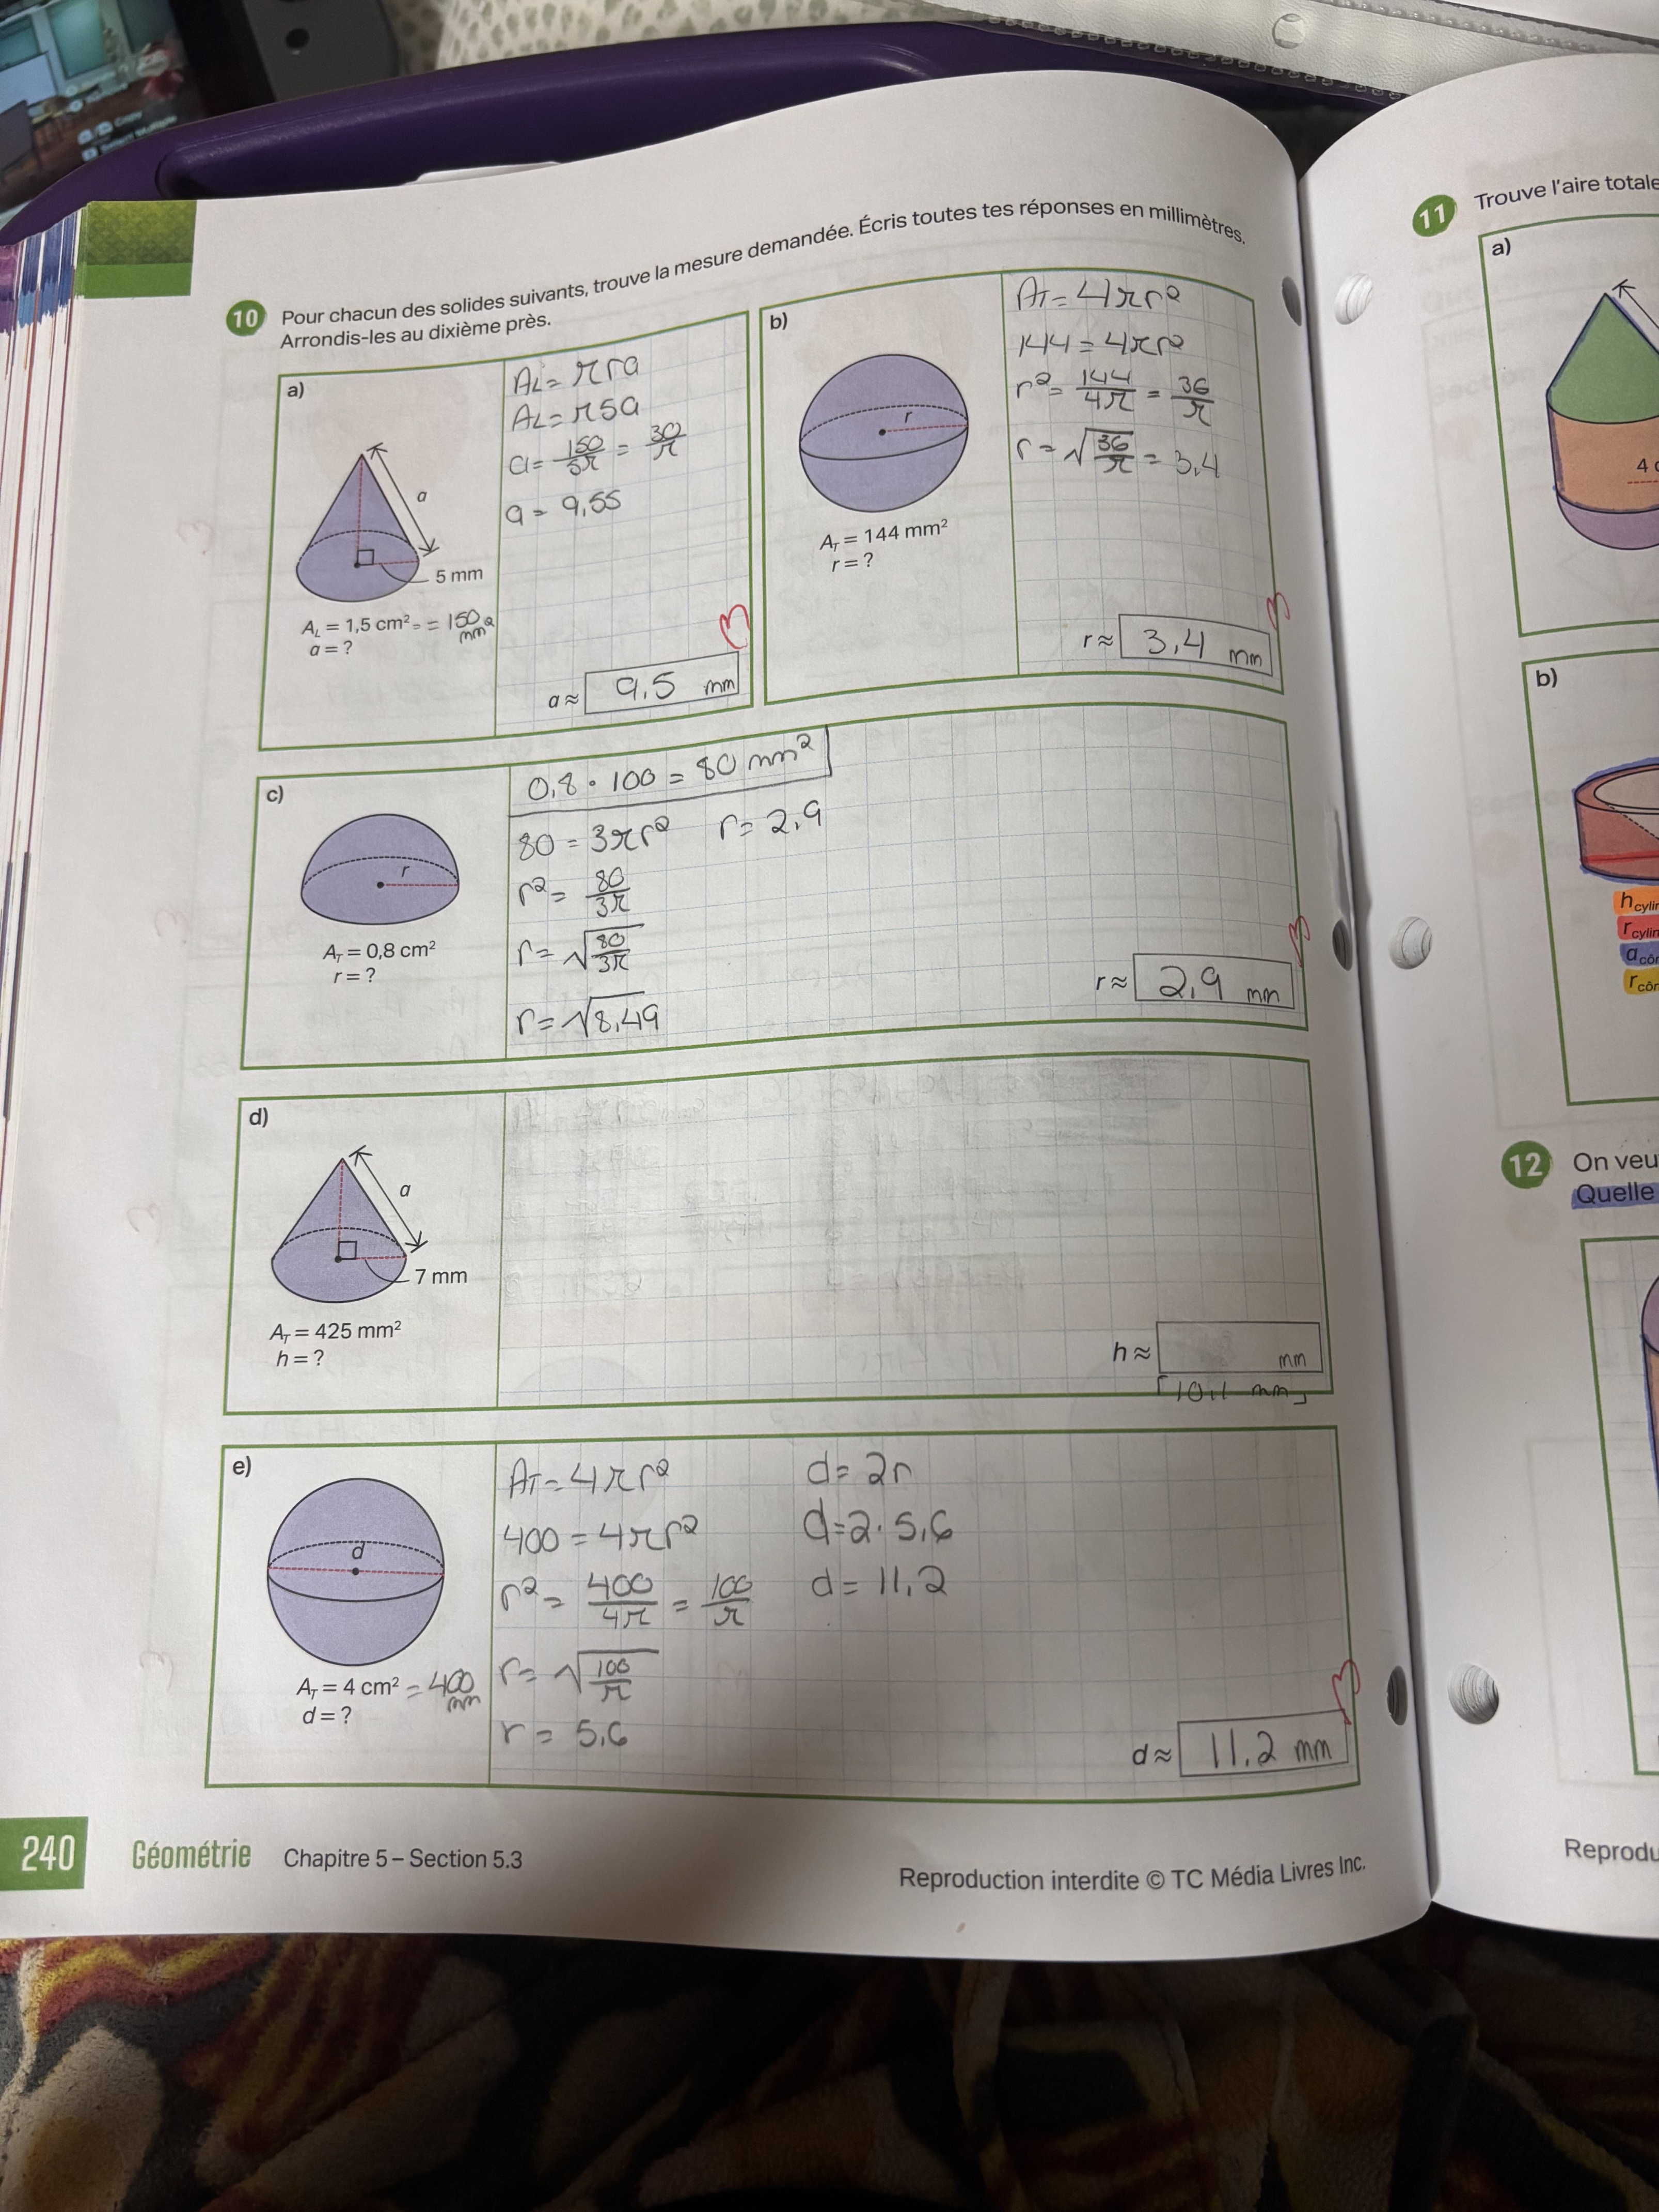 Copy
10 Pour chacun des solides suivants, trouve la mesure demandée. Écris toutes tes réponses en millimètres.
Arrondis-les au dixième près.
a)
a
5 mm
A_L = 1,5 cm² = 150 mm²
a = ?
A_L = πra
A_L = π5a
a = 150/5π = 30/π
a = 9,55
a ≈ 9,5 mm
b)
r
A_T = 144 mm²
r = ?
A_T = 4πr²
144 = 4πr²
r² = 144/4π = 36/π
r = √36/π = 3,4
r ≈ 3,4 mm
c)
r
A_T = 0,8 cm²
r = ?
0,8 · 100 = 80 mm²
80 = 3πr² r = 2,9
r² = 80/3π
r = √80/3π
r = √8,49
r ≈ 2,9 mm
d)
a
7 mm
A_T = 425 mm²
h = ?
h ≈ mm
[10,1 mm]
e)
d
A_T = 4 cm² = 400 mm
d = ?
A_T = 4πr²
400 = 4πr²
r² = 400/4π = 100/π
r = √100/π
r = 5,6
d = 2r
d = 2 · 5,6
d = 11,2
d ≈ 11,2 mm
240 Géométrie Chapitre 5 – Section 5.3
Reproduction interdite © TC Média Livres Inc.
11 Trouve l'aire totale
a)
4
b)
h cylin
r cylin
a côn
r côn
12 On veu
Quelle
Reprodu